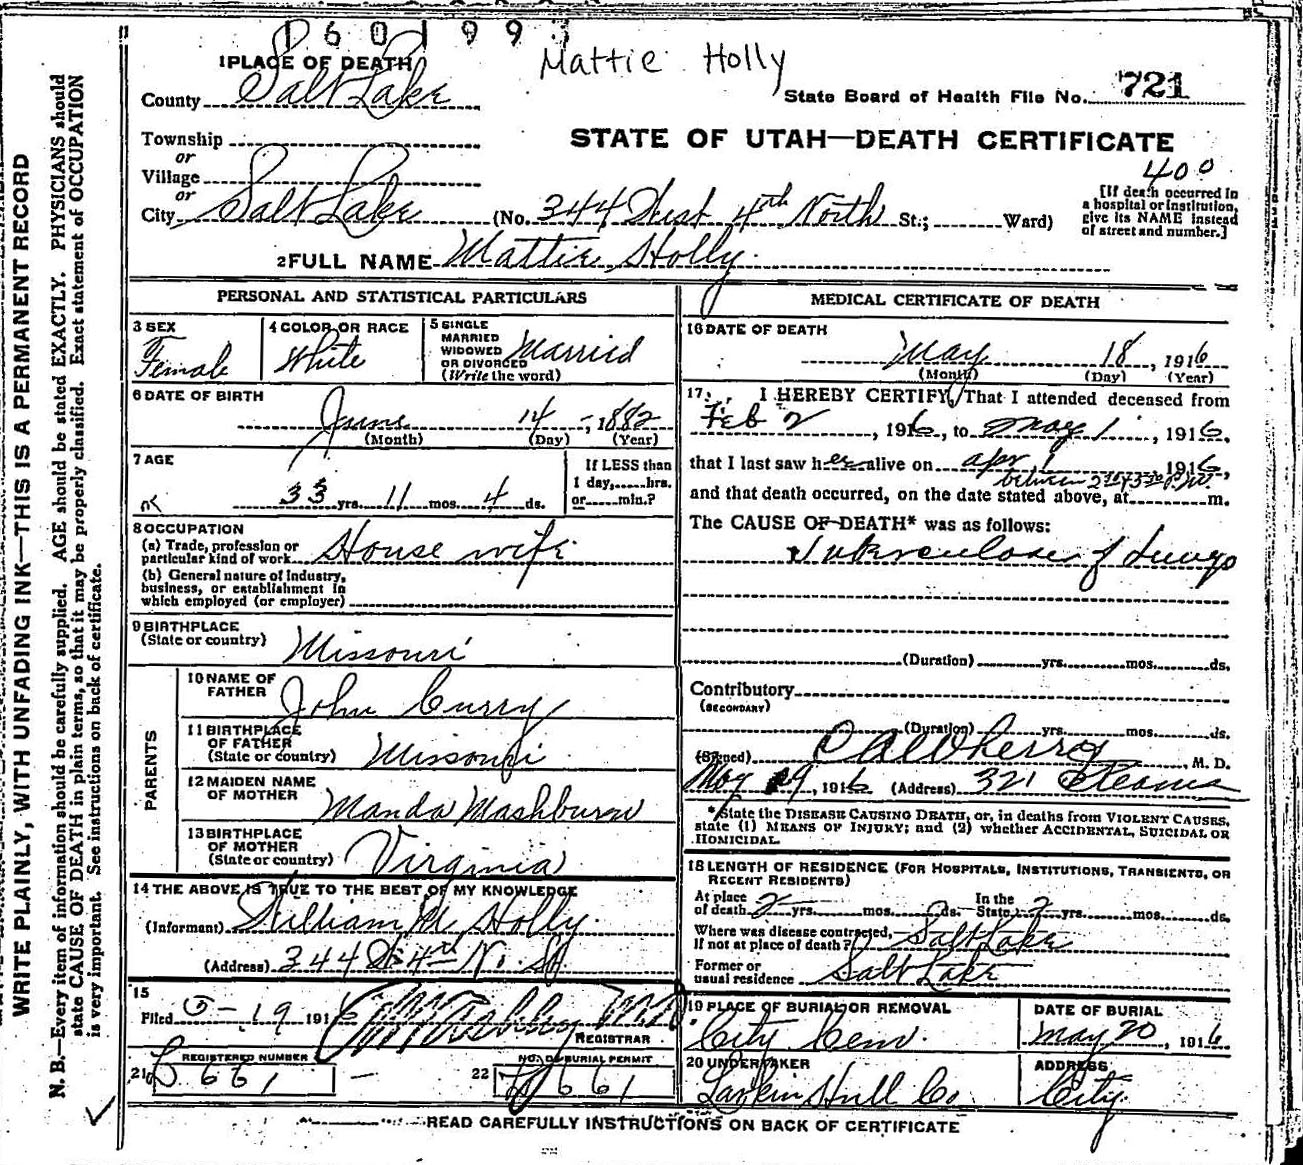 160199
Mattie Holly
1 PLACE OF DEATH
County Salt Lake
State Board of Health File No. 721
STATE OF UTAH—DEATH CERTIFICATE
Township
or
Village
or
City Salt Lake (No. 344 West 4th North St.; Ward)
400
[If death occurred in
a hospital or institution,
give its NAME instead
of street and number.]
2 FULL NAME Mattie Holly
PERSONAL AND STATISTICAL PARTICULARS
3 SEX
Female
4 COLOR OR RACE
White
5 SINGLE
MARRIED
WIDOWED
OR DIVORCED
(Write the word)
Married
6 DATE OF BIRTH
June 14, 1882
(Month) (Day) (Year)
7 AGE
33 yrs. 11 mos. 4 ds.
If LESS than
1 day,......hrs.
or......min.?
8 OCCUPATION
(a) Trade, profession or
particular kind of work House wife
(b) General nature of industry,
business, or establishment in
which employed (or employer)
9 BIRTHPLACE
(State or country) Missouri
PARENTS
10 NAME OF
FATHER John Curry
11 BIRTHPLACE
OF FATHER
(State or country) Missouri
12 MAIDEN NAME
OF MOTHER Manda Mashburn
13 BIRTHPLACE
OF MOTHER
(State or country) Virginia
14 THE ABOVE IS TRUE TO THE BEST OF MY KNOWLEDGE
(Informant) William M. Holly
(Address) 344 4 No. St
15
Filed 5-19 1916
REGISTRAR
REGISTERED NUMBER
21 661
NO. OF BURIAL PERMIT
22 661
MEDICAL CERTIFICATE OF DEATH
16 DATE OF DEATH
May 18, 1916
(Month) (Day) (Year)
17. I HEREBY CERTIFY, That I attended deceased from
Feb 2, 1916, to May 1, 1916,
that I last saw her alive on apr 1 1916,
between P.M.
and that death occurred, on the date stated above, at m.
The CAUSE OF DEATH* was as follows:
Tuberculosis of Lungs
(Duration) yrs. mos. ds.
Contributory
(SECONDARY)
(Duration) yrs. mos. ds.
(Signed) M. D.
May 19, 1916 (Address) 321
*State the DISEASE CAUSING DEATH, or, in deaths from VIOLENT CAUSES,
state (1) MEANS OF INJURY; and (2) whether ACCIDENTAL, SUICIDAL OR
HOMICIDAL.
18 LENGTH OF RESIDENCE (FOR HOSPITALS, INSTITUTIONS, TRANSIENTS, OR
RECENT RESIDENTS)
At place
of death 2 yrs. mos. ds. In the
State 2 yrs. mos. ds.
Where was disease contracted,
If not at place of death? Salt Lake
Former or
usual residence Salt Lake
19 PLACE OF BURIAL OR REMOVAL
City Cem.
DATE OF BURIAL
May 20, 1916
20 UNDERTAKER
Larkin Hull Co.
ADDRESS
City
READ CAREFULLY INSTRUCTIONS ON BACK OF CERTIFICATE
WRITE PLAINLY, WITH UNFADING INK—THIS IS A PERMANENT RECORD
N. B.—Every item of information should be carefully supplied. AGE should be stated EXACTLY. PHYSICIANS should
state CAUSE OF DEATH in plain terms, so that it may be properly classified. Exact statement of OCCUPATION
is very important. See instructions on back of certificate.